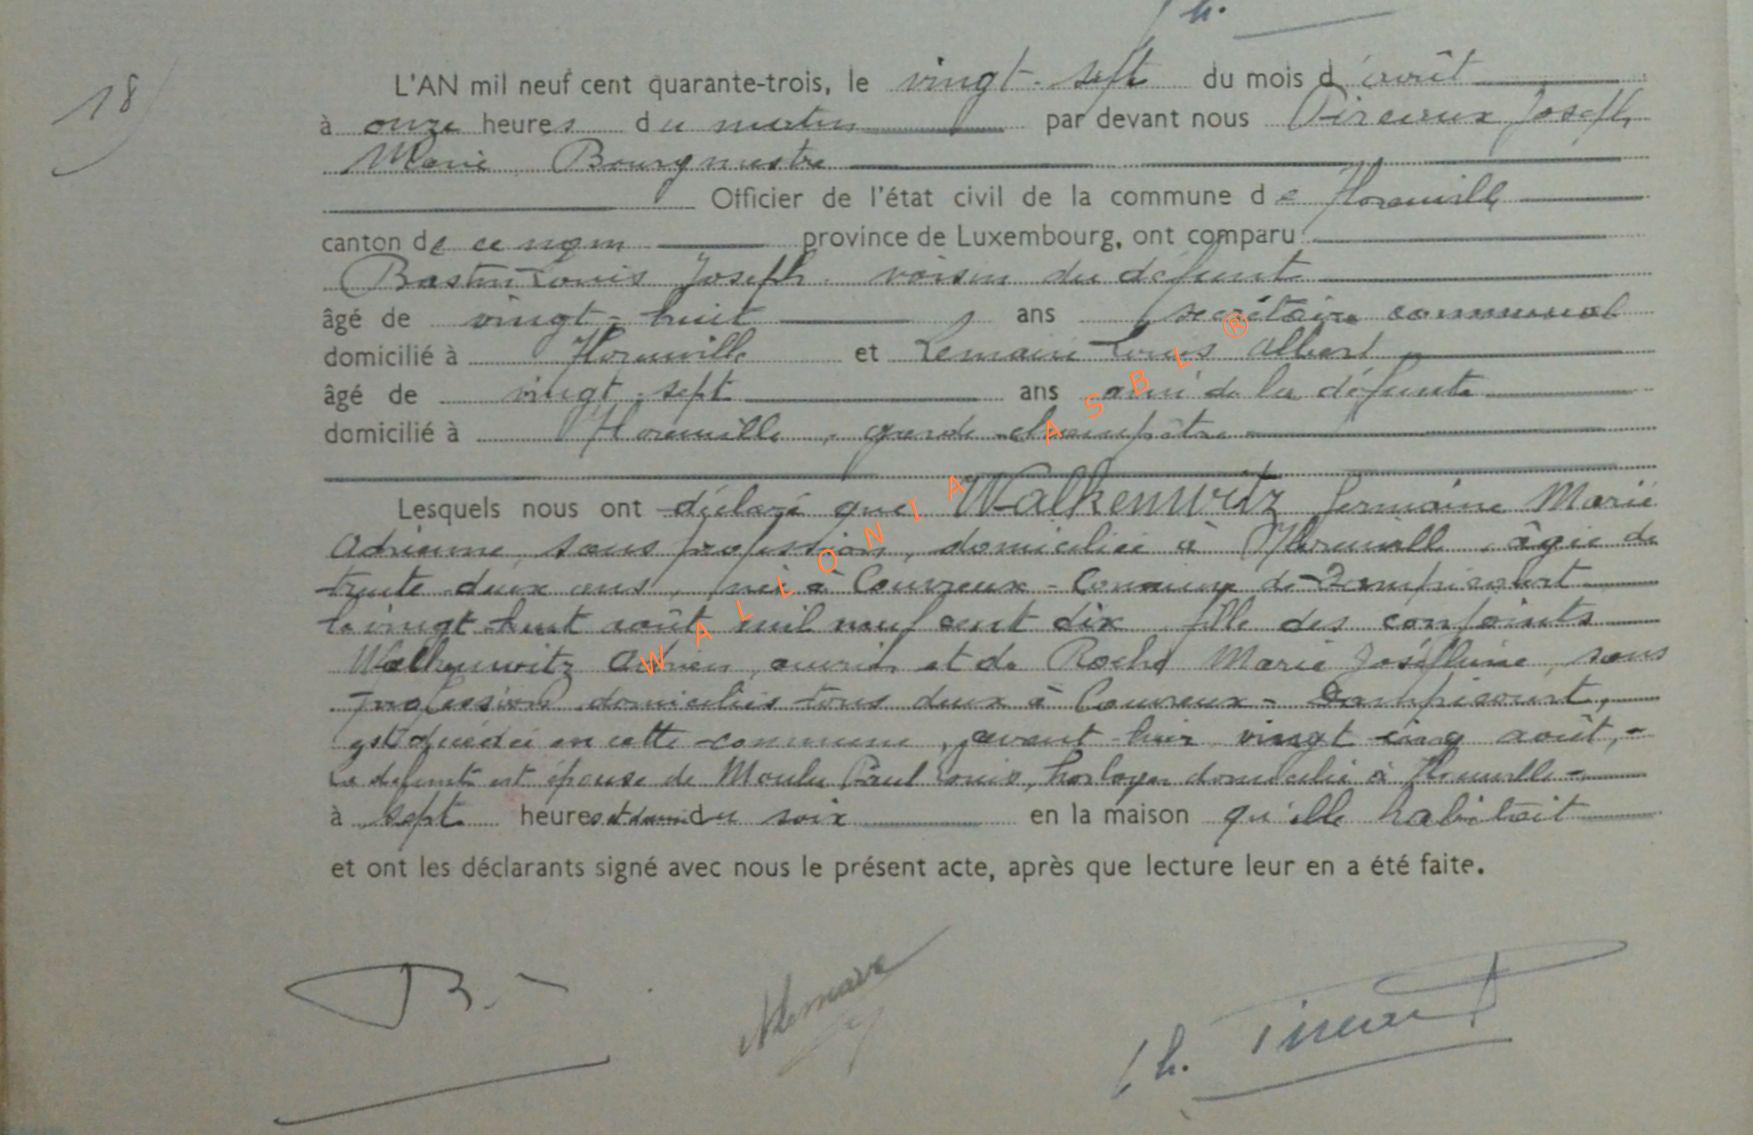 h.
18
L'AN mil neuf cent quarante-trois, le vingt-sept du mois d'août
à onze heures du matin par devant nous Pireaux Joseph
Marie Bourgmestre
Officier de l'état civil de la commune de Florenville
canton de ce nom province de Luxembourg, ont comparu
Bastin Louis Joseph voisin du défunt
âgé de vingt-huit ans secrétaire communal
domicilié à Florenville et Lemaire Louis Albert
âgé de vingt-sept ans ami de la défunte
domicilié à Florenville, garde-champêtre
Lesquels nous ont déclaré que Walkenwitz Germaine Marie
Adrienne, sans profession, domiciliée à Florenville, âgée de
trente deux ans, née à Couvreux - Commune de Dampicourt
le vingt huit août mil neuf cent dix fille des conjoints
Walkenwitz Adrien, ouvrier et de Roche Marie Joséphine, sans
profession domiciliés tous deux à Couvreux - Dampicourt,
est décédée en cette commune, avant hier vingt cinq août,-
La défunte est épouse de Moulu Paul Louis, horloger domicilié à Florenville-
à sept heures et demi du soir en la maison qu'elle habitait
et ont les déclarants signé avec nous le présent acte, après que lecture leur en a été faite.
WALLONIA ASBL ®
B.
Alemaire
h.